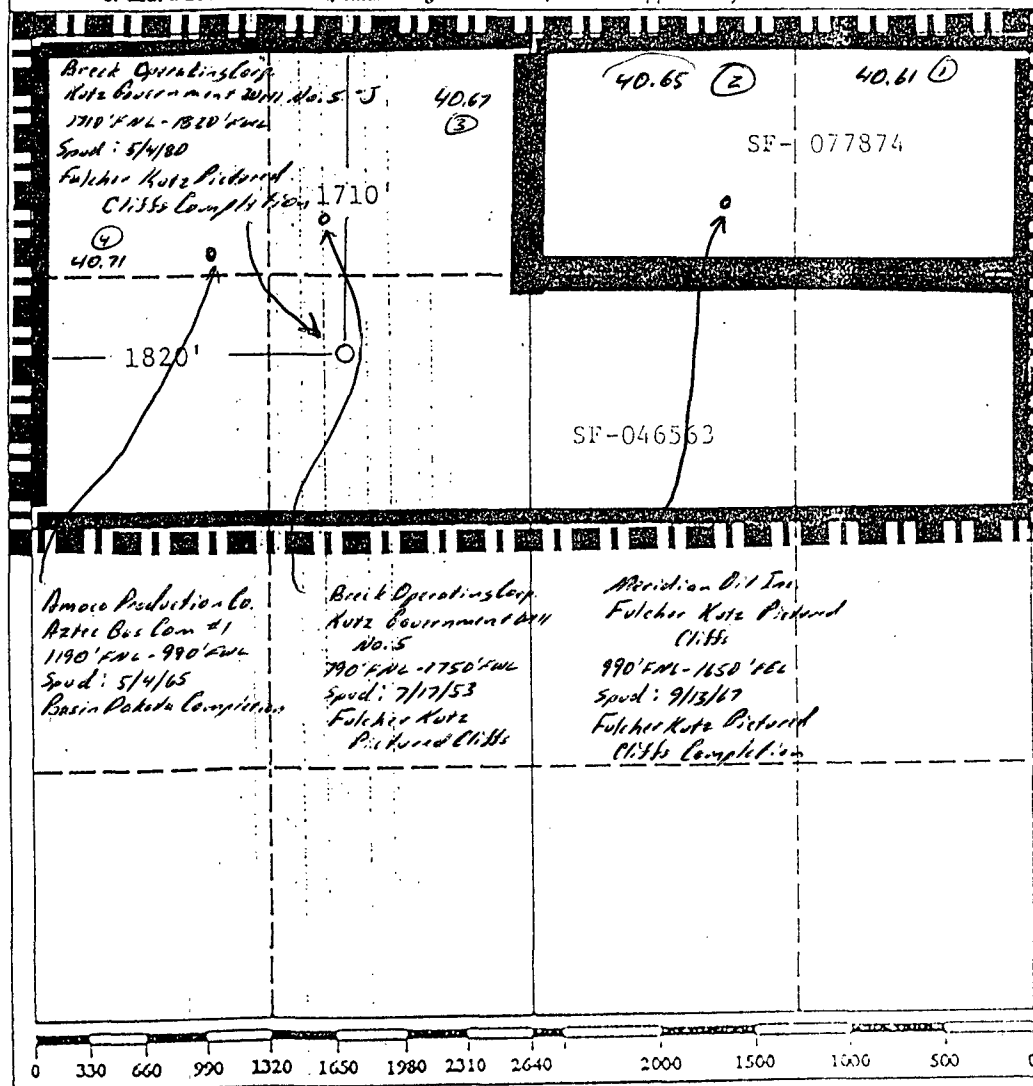 Breck Operating Corp.
Kutz Government Well No. 5-J
1710' FNL - 1820' FWL
Spud: 5/4/80
Fulcher Kutz Pictured
Cliffs Completion
40.67
③
40.65 ②
40.61 ①
SF- 077874
1710'
④
40.71
1820'
SF-046563
Amoco Production Co.
Aztec Gas Com #1
1190' FNL - 990' FWL
Spud: 5/4/65
Basin Dakota Completion
Breck Operating Corp.
Kutz Government Well
No. 5
790' FNL - 1750' FWL
Spud: 7/17/53
Fulcher Kutz
Pictured Cliffs
Meridian Oil Inc.
Fulcher Kutz Pictured
Cliffs
990' FNL - 1650' FEL
Spud: 9/13/67
Fulcher Kutz Pictured
Cliffs Completion
0 330 660 990 1320 1650 1980 2310 2640 2000 1500 1000 500 0